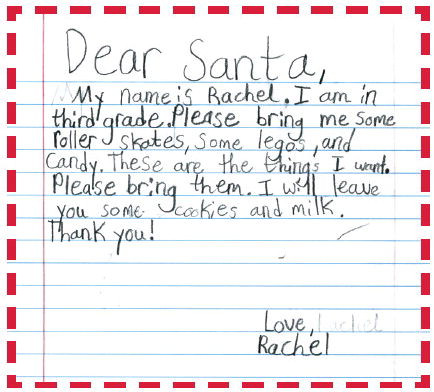 Dear Santa,
My name is Rachel. I am in
third grade. Please bring me some
roller skates, some legos, and
Candy. These are the things I want.
Please bring them. I will leave
you some cookies and milk.
Thank you!
Love,
Rachel